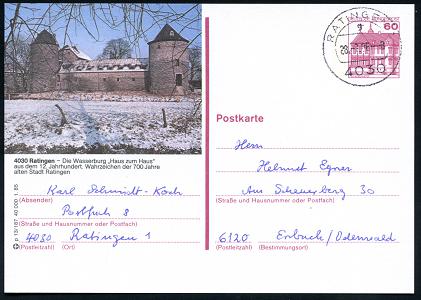 RATINGEN
4030
60
4030 Ratingen – Die Wasserburg „Haus zum Haus"
aus dem 12. Jahrhundert. Wahrzeichen der 700 Jahre
alten Stadt Ratingen
Karl Schmidt-Koch
(Absender)
Postfach 8
(Straße und Hausnummer oder Postfach)
4030 Ratingen 1
(Postleitzahl) (Ort)
Postkarte
Herrn
Helmut Egner
Am Scheuerberg 30
(Straße und Hausnummer oder Postfach)
6120 Erbach/Odenwald
(Postleitzahl) (Bestimmungsort)